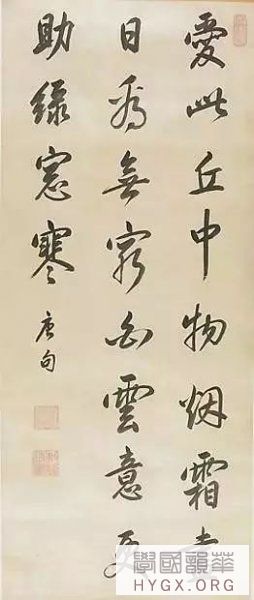 愛此丘中物烟霜盡
日看無窮白雲意更
助綠窓寒
唐句
學國韻華
HYGX.ORG